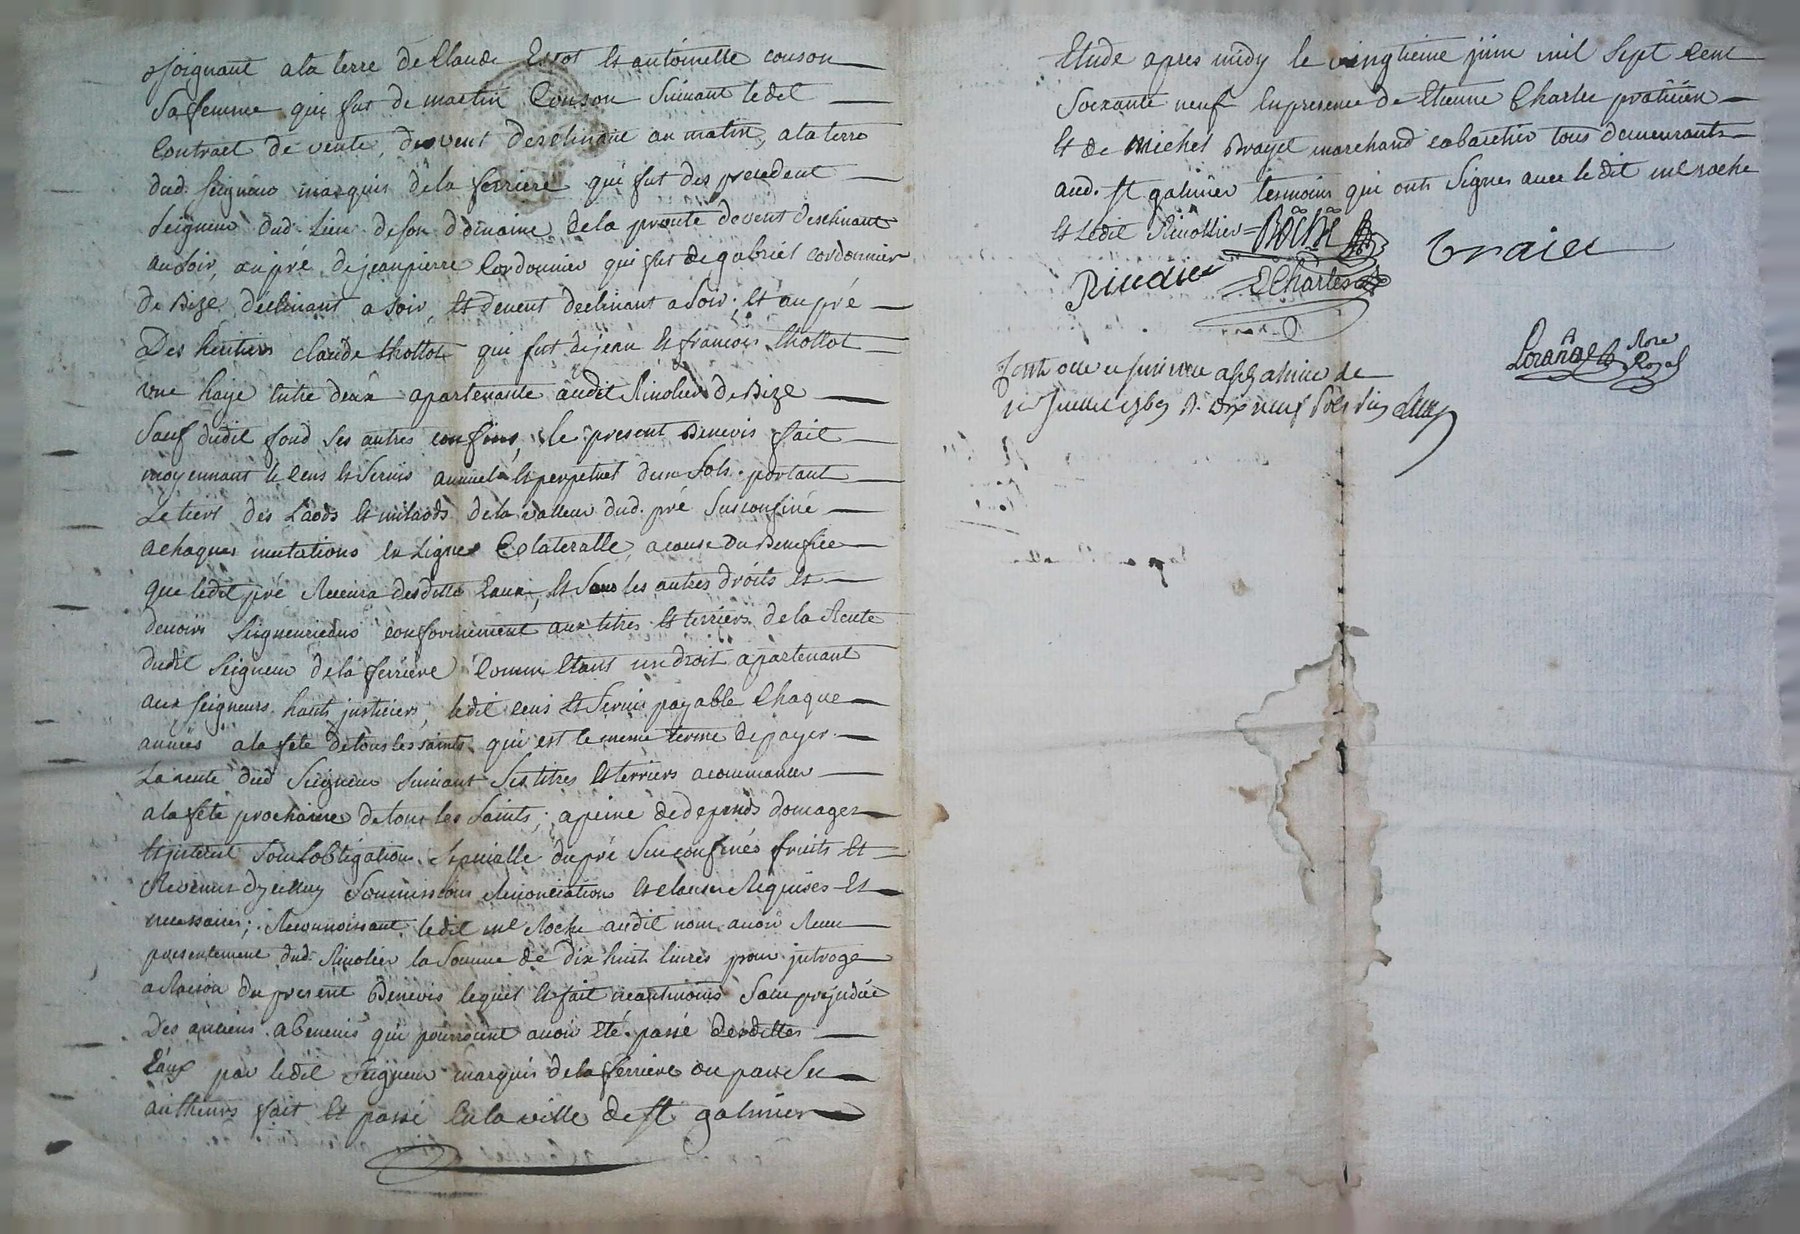 joignant a la terre de Claude Essot et antoinette couson
sa femme qui fut de martin Couson suivant ledit
Contract de vente, devent desclinant au matin, a la terre
dud. seigneur marquis de la ferriere qui fut des precedent
seigneur dud. Lieu de son domaine de la proute devent desclinant
au soir, au pré de jean pierre Cordonnier qui fut de gabriel cordonnier
de Bize declinant a soir, et devent declinant a soir; et au pré
Des heritiers claude thollot qui fut de jean et francois thollot
une haye entre deux apartenante audit Rimolier de Bize
sauf dudit fond ses autres confins, le present Benevis fait
moyennant le cens et servis annuel et perpetuel d'un sols portant
Le tiers des Laods et milaods de la valleur dud. pré susconfiné
a chaques mutations en Ligne Colateralle, a cause du Benefice
que ledit pré Recevra desdittes Eaux, et sous les autres droits et
devoirs seigneuriaux conformement aux titres et terriers de la Rente
dudit seigneur de la ferriere Comme etant un droit apartenant
aux seigneurs hauts justiciers, ledit cens et servis payable Chaque
années a la fete de tous les saints qui est le meme terme de payer
La rente dud seigneur suivant ses titres et terriers a commancer
a la fete prochaine de tous les saints; a peine de depends domages
et interest sous l'obligation speciale du pré susconfinés fruits et
Revenus d'yceluy soumissions Renonciations et clauses Requises et
necessaires; Reconnoissant ledit me Roche audit nom avoir Receu
presentement dud. Rimolier la somme de dix huit livres pour introge
a Raison du present Benevis lequel est fait neantmoins sans prejudice
Des anciens abenevis qui pourroient avoir eté passé desdittes
Eaux par ledit seigneur marquis de la ferriere ou par ses
autheurs fait et passé en la ville de st galmier
Etude apres midy le vingtieme juin mil sept cent
soixante neuf en presence de Etienne Charles praticien
et de michel Brayet marchand cabaretier tous demeurants
aud. st galmier temoins qui ont signes avec ledit me roche
et Ledit Rimollier
Roche
Braiet
Charles
Loranget Nore Royal
juillet 1769 R. dix neuf sols six